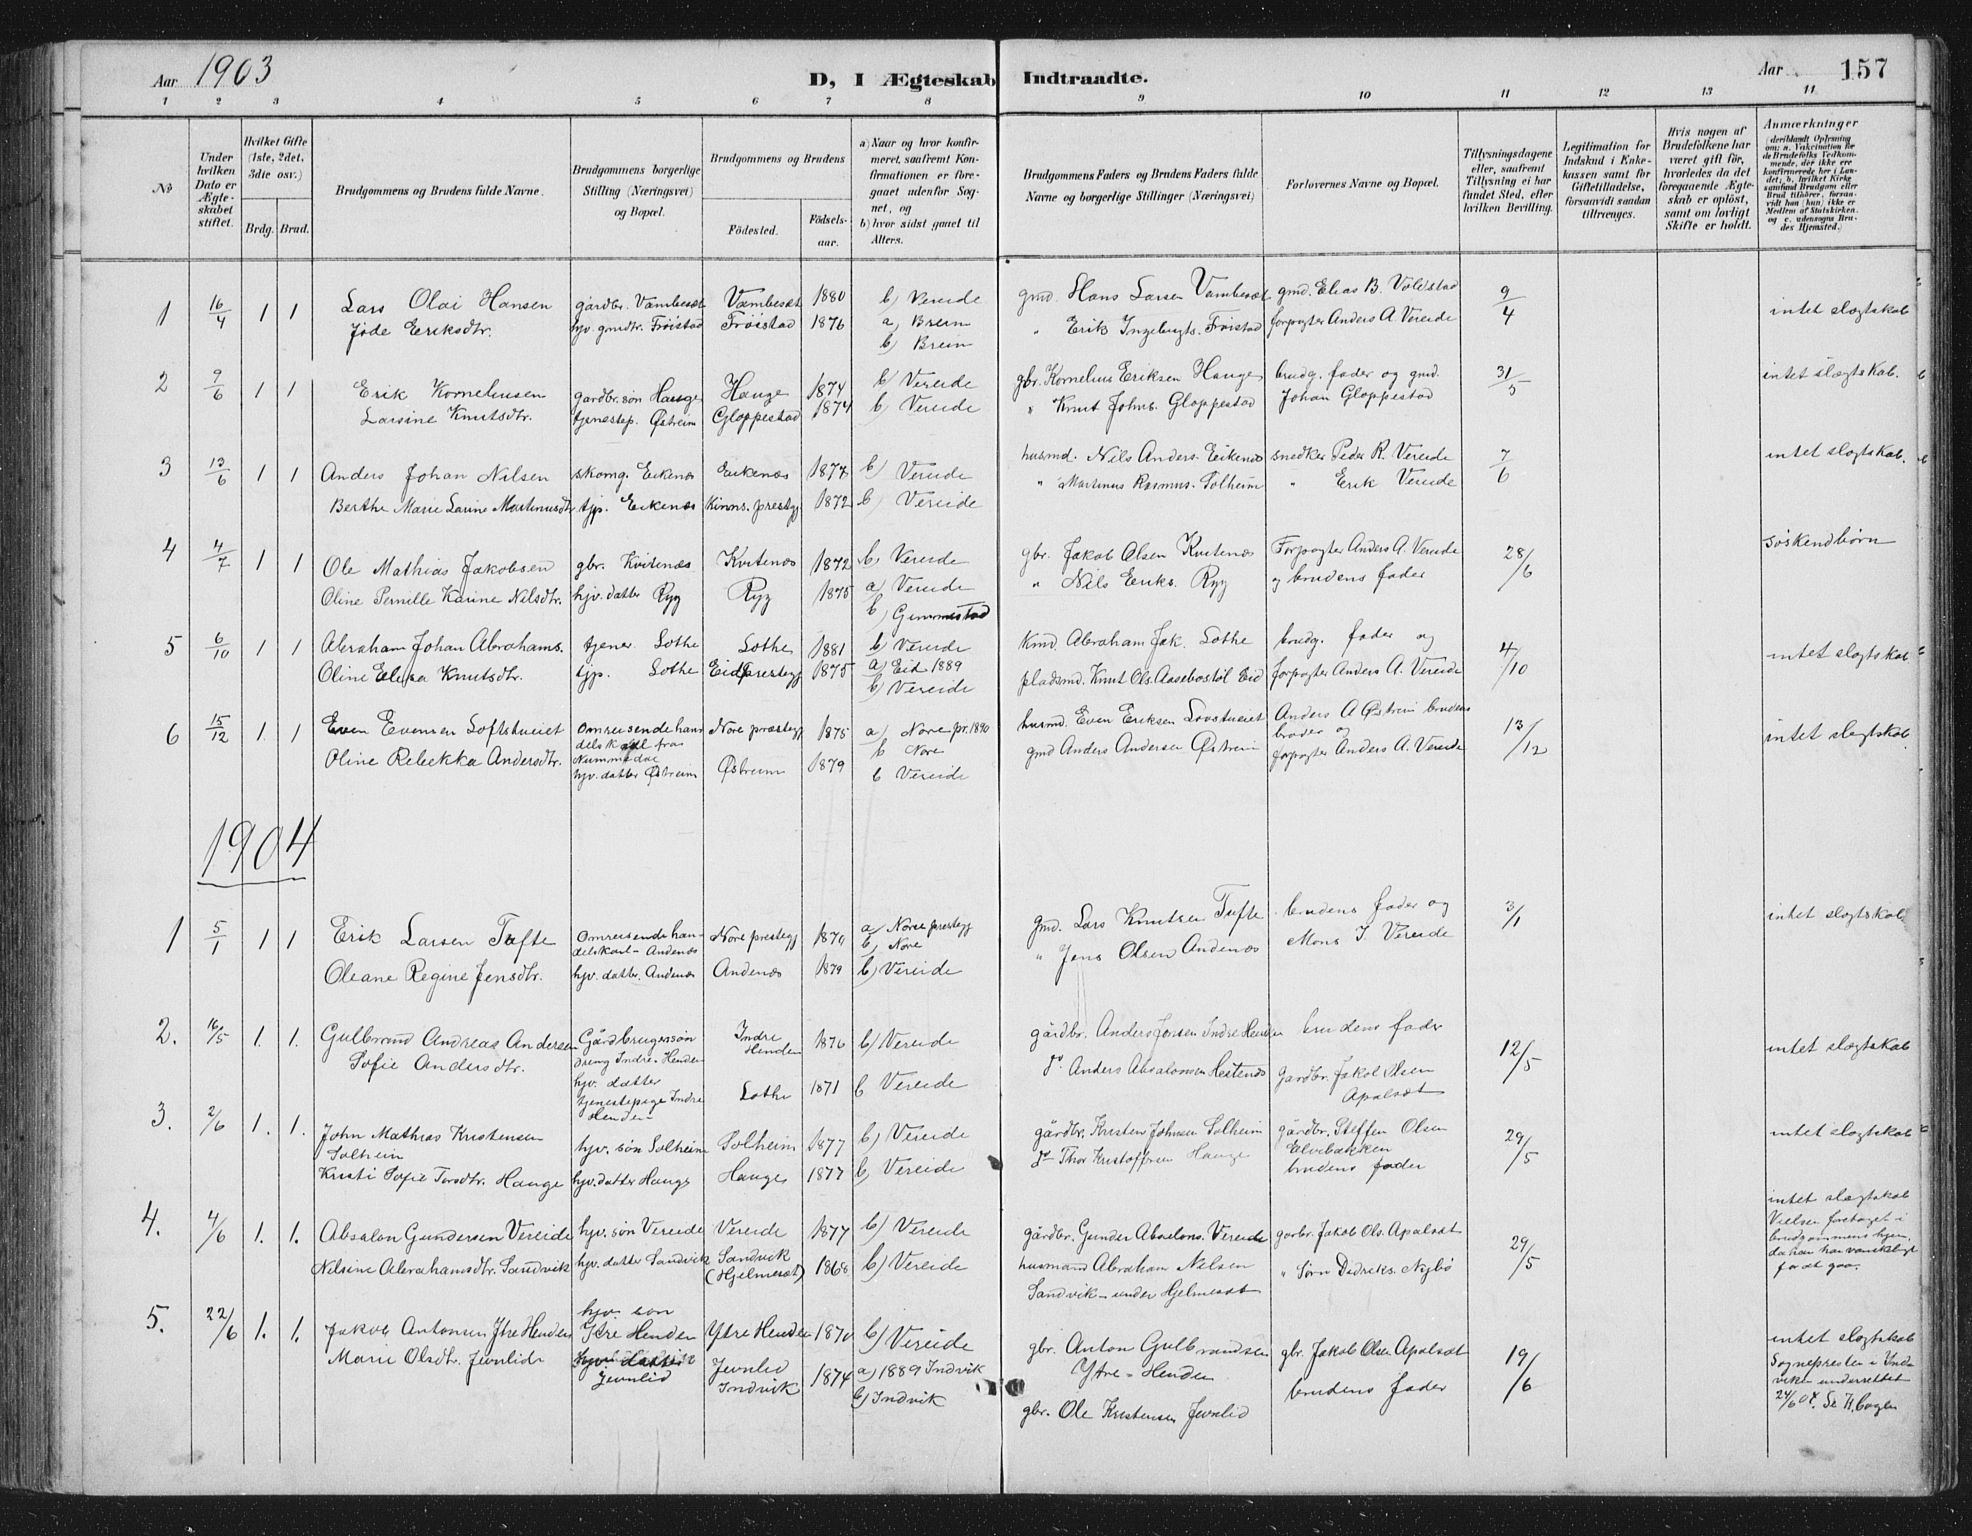 Aar 1903
D, I Ægteskab Indtraadte.
Aar 157
1 2 3 4 5 6 7 8 9 10 11 12 13 11
No
Under hvilken Dato er Ægteskabet stiftet.
Hvilket Gifte (1ste, 2det, 3die osv.)
Brdg. Brud.
Brudgommens og Brudens fulde Navne.
Brudgommens borgerlige Stilling (Næringsvei) og Bopæl.
Brudgommens og Brudens
Födested.
Födselsaar.
a) Naar og hvor konfirmeret, saafremt Konfirmationen er foregaaet udenfor Sognet, og
b) hvor sidst gaaet til Alters.
Brudgommens Faders og Brudens Faders fulde Navne og borgerlige Stillinger (Næringsvei)
Forlovernes Navne og Bopæl.
Tillysningsdagene eller, saafremt Tillysning ei har fundet Sted, efter hvilken Bevilling.
Legitimation for Indskud i Enkekassen samt for Giftetilladelse, forsaavidt saadan tiltrænges.
Hvis nogen af Brudefolkene har været gift för, hvorledes da det foregaaende Ægteskab er oplöst, samt om lovligt Skifte er holdt.
Anmærkninger
1 16/4 1 1 Lars Olai Hansen gårdbr. Vambesæt Vambesæt 1880 b) Vereide gmd. Hans Larsen Vambesæt gmd. Elias B. Völdstad 9/4 intet slægtskab
Jøde Eriksdtr. hjv. gmdtr. Frøistad Frøistad 1876 a) Breim " Erik Ingebrigts. Frøistad forpagter Anders A. Vereide
b) Breim
2 9/6 1 1 Erik Korneliusen gardbr. søn Hauge Hauge 1874 b) Vereide gbr. Kornelius Eriksen Hauge brudg. fader og gmd. 31/5 intet slægtskab.
Larsine Knutsdtr. tjenestep. Østreim Gloppestad 1874 b) Vereide " Knut Johns. Gloppestad Johan Gloppestad
3 13/6 1 1 Anders Johan Nilsen skomg. Eikenæs Eikenæs 1874 b) Vereide husmd. Nils Anders. Eikenæs snedker Peder R. Vereide 7/6 intet slægtskab.
Berthe Marie Larine Martinusdtr tjp. Eikenæs Kinns. prestgj 1872 b) Vereide " Martinus Rasmus. Solheim " Erik Vereide
4 4/7 1 1 Ole Mathias Jakobsen gbr. Kvitenæs Kvitenæs 1872 b) Vereide gbr. Jakob Olsen Kvitenæs Forpagter Anders A. Vereide 28/6 søskendbørn
Oline Pernille Karine Nilsdtr. hjv. datter Ryg Ryg 1875 a) Vereide " Nils Eriks. Ryg og brudens fader
b) Gimmestad
5 6/10 1 1 Abraham Johan Abrahams. tjener Lothe Lothe 1881 b) Vereide Kmd. Abraham Jak. Lothe brudg. fader og 4/10 intet slægtskab
Oline Elisa Knutsdtr. tjp. Lothe Eids prestegj 1875 a) Eid 1889 pladsmd. Knut Ols. Aasebøstöl Eid forpagter Anders A. Vereide
b) Vereide
6 15/12 1 1 Even Evensen Loftshueiet Omreisende handelskarl fra Nummedal Nore prestegj 1875 a) Nore pr. 1890 husmd. Even Eriksen Lovstueiet Anders A Østreim brudens broder og 13/12 intet slægtskab.
b Nore
Oline Rebekka Andersdtr. hjv. datter Østreim Østreim 1879 b Vereide gmd Anders Andersen Østreim forpagter Anders A. Vereide
1904
1 5/1 1 1 Erik Larsen Tufte Omreisende handelskarl – Andenæs Nore prestegj 1870 a) Nore prestegj gmd. Lars Knutsen Tufte brudens fader og 3/1 intet slægtskab
b) Nore
Oleane Regine Jensdtr. hjv. datter. Andenæs Andenæs 1879 b) Vereide " Jens Olsen Andenæs Mons I. Vereide
2. 16/5 1. 1. Gulbrand Andreas Andersen Gårdbrugersøn dreng Indre Henden Indre Henden 1876 b) Vereide gårdbr. Anders Jensen Indre Henden brudens fader 12/5 intet slægtskab
Sofie Andersdtr. hjv. datter tjenestepige Indre Henden Lothe 1871 b Vereide do Anders Absalonsen Hestenæs Gardbr. Jakob Olsen Apalsæt
3. 2/6 1. 1. John Mathias Kristensen Solheim hjv. søn Solheim Solheim 1877 b) Vereide gårdbr. Kristen Johnsen Solheim gårdbr. Steffen Olsen Elvebakken 29/5 intet slægtskab
Kristi Sofie Torsdtr. Hauge hjv. datter Hauge Hauge 1877 b) Vereide do Thor Kristoffersen Hauge brudens fader
4. 4/6 1. 1. Absalon Gundersen Vereide hjv. søn Vereide Vereide 1877 b) Vereide gårdbr. Gunder Absalons. Vereide garbr. Jakob Ols. Apalsæt 29/5 intet slægtskab
Vielsen foretaget i brudgommens hjem, da han har vanskeligt for at gaa.
Nilsine Abrahamsdtr. Sandvik hjv. datter Sandvik Sandvik (Hjelmesæt) 1868 b) Vereide husmand Abraham Nilsen Sandvik – under Hjelmesæt " Sørn Didreks. Nybø
5. 22/6 1. 1. Jakob Antonsen Ytre Henden hjv. søn Ytre Henden Ytre Henden 1870 b) Vereide gbr. Anton Gulbrandsen Ytre – Henden gbr. Jakob Olsen Apalsæt 19/6 intet slægtskab
Marie Olsdtr. Jevnlid hjv. datter Jevnlid Jevnlid Indvik 1874 a) 1889 Indvik b) Indvik gbr. Ole Kristensen Jevnlid brudens fader
Sognepresten i Indviken underrettet 24/6 04.